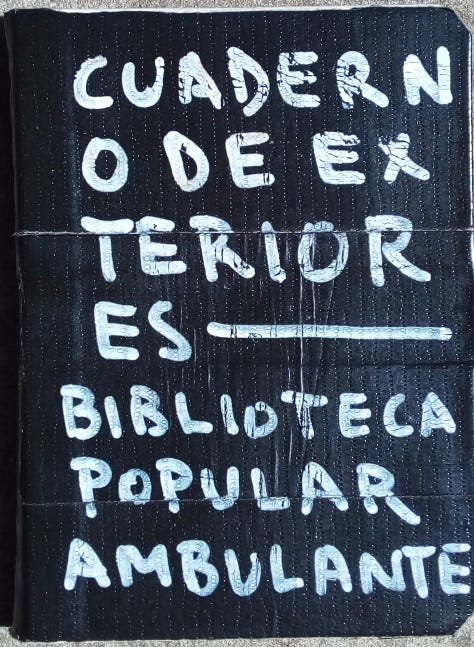 CUADERN
O DE EX
TERIOR
ES
BIBLIOTECA
POPULAR
AMBULANTE